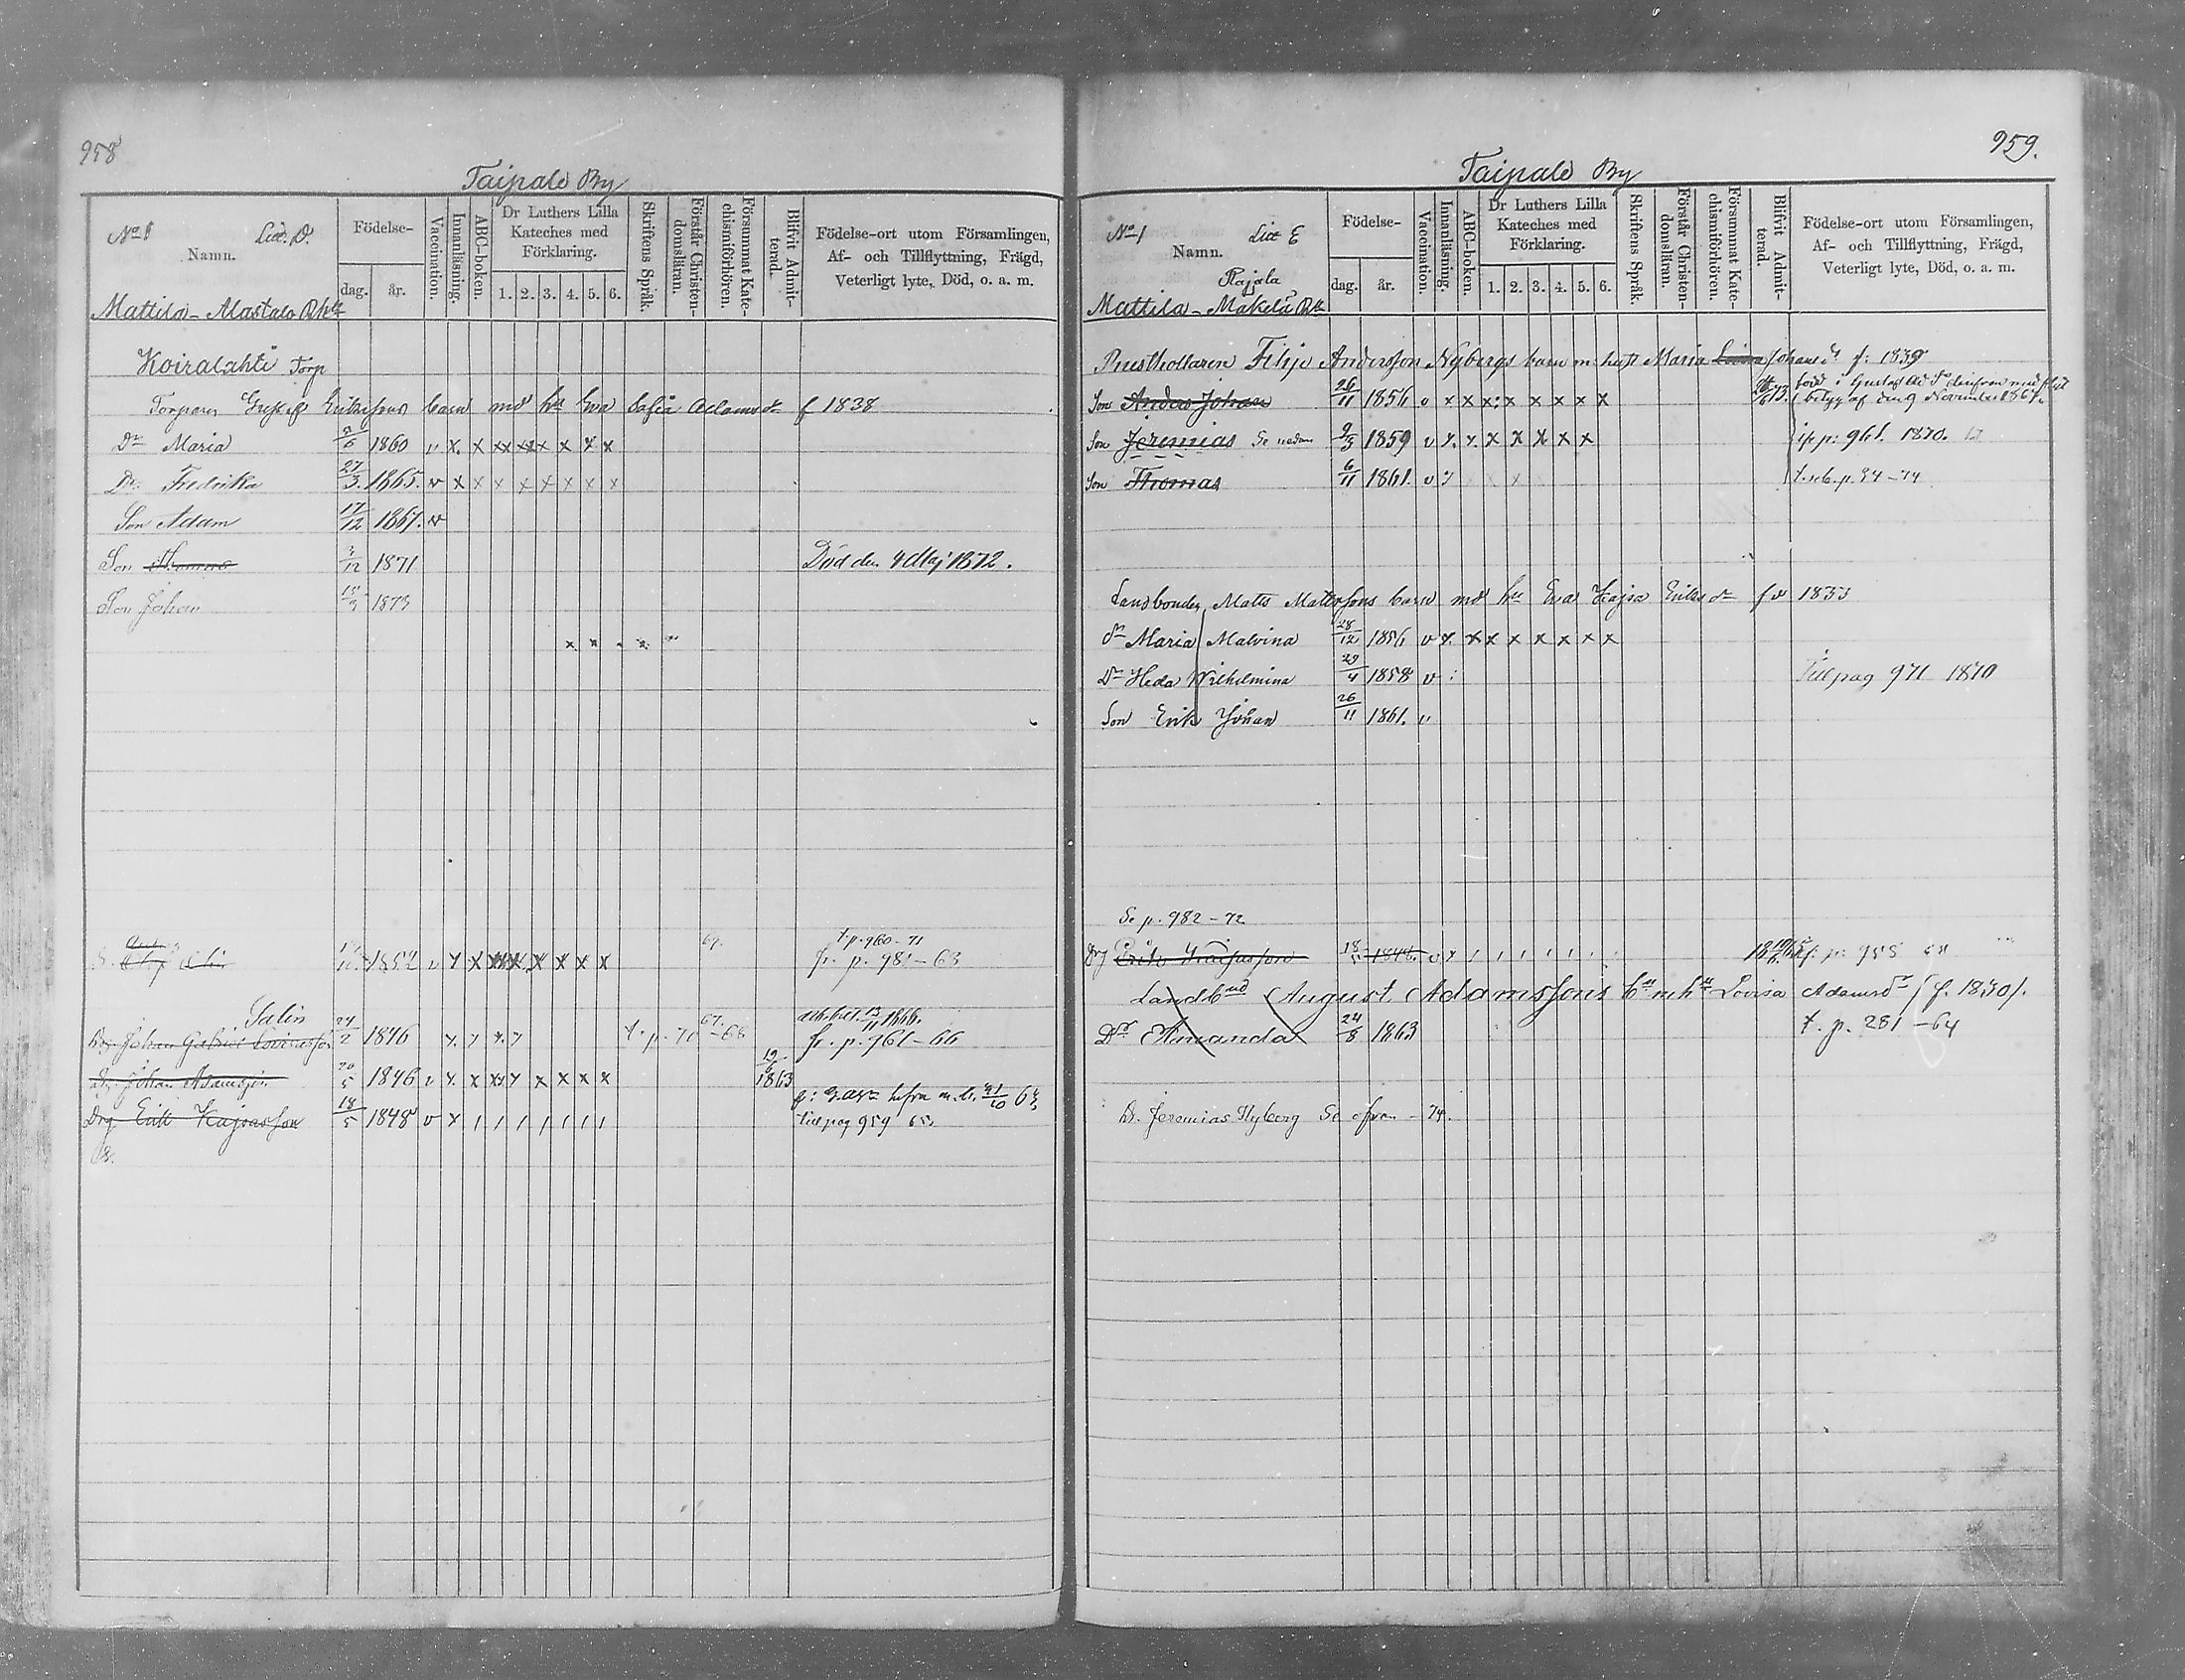 958
Taipale By
No 1 Litt. D.
Namn.
Födelse-
dag. år.
Vaccination.
Innanläsning.
ABC-boken.
Dr Luthers Lilla Kateches med Förklaring.
1. 2. 3. 4. 5. 6.
Skriftens Språk.
Förstår Christen-domsläran.
Försummat Kate-chismiförhören.
Blifvit Admit-terad.
Födelse-ort utom Församlingen,
Af- och Tillflyttning, Frägd,
Veterligt lyte, Död, o. a. m.
Mattila - Mastalo
Koiralahti Torp
Torparen Erikssons barn md hu Eva Sofia Adamsdr f 1838
Dr Maria 6 1860 v x x xx x x x x x
Dr Fredrika 27/3 1865. v x x x x x x x x
Son Adam 17/12 1867. v
Son Thomas /12 1871 Död den 4 Maj 1872.
Son Johan /3 1873
x x x
69. t.p. 960-71
1852 v x x x x x x x fr. p. 981-63
Salin 67. 13/11 1866.
Drg Johan Gabriel Lovisasson 24/2 1846 t. p. 70 -68 fr. p. 961-66
Drg Johan Adamsson 20/5 1846 v x x x x x x x 19/6 1863
Drg Erik Kajsasson 18/5 1848 v x / / / / / / / till pag 959 65
959.
Taipale By
No 1 Litt E
Namn.
Födelse-
dag. år.
Vaccination.
Innanläsning.
ABC-boken.
Dr Luthers Lilla Kateches med Förklaring.
1. 2. 3. 4. 5. 6.
Skriftens Språk.
Förstår Christen-domsläran.
Försummat Kate-chismiförhören.
Blifvit Admit-terad.
Födelse-ort utom Församlingen,
Af- och Tillflyttning, Frägd,
Veterligt lyte, Död, o. a. m.
Rajala
Mattila - Mäkelä
Filip Andersson Nybergs barn m. hust Maria Johansdr f: 1839
Son Anders Johan 26/11 1856 v x x x x x x x x född i Gustaf Ad
betyg af den 9 November 1867.
Son Jeremias Se nedan 9/3 1859 v x x x x x x x p: 961. 1870.
Son Thomas 6/11 1861. v t. p. 94-74
Landbonden Matts Mattssons barn md hu Eva Kajsa Eriksdr f 1833
dr Maria Malvina 28/12 1856 v x x x x x x x x
Dr Heda Wilhelmina 29/4 1858 v Till pag 971 1870
Son Erik Johan 26/11 1861. v
Se p. 982-72
Drg Erik Kajsasson 18/5 1848. v x / / / / / / p: 958
Landbnd August Adamssons bn m hu Lovisa Adamsdr (f. 1830).
Dr Amanda 24/8 1863 t. p. 281-64
Dr. Jeremias Nyberg Se ofvan - 74.